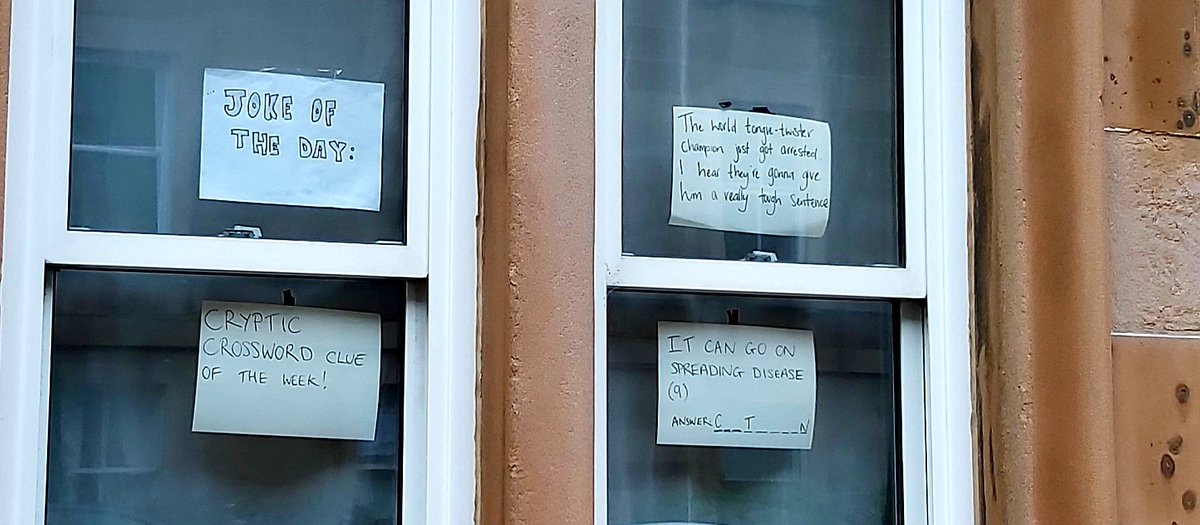 JOKE OF
THE DAY:
The world tongue-twister
champion just got arrested.
I hear they're gonna give
him a really tough sentence
CRYPTIC
CROSSWORD CLUE
OF THE WEEK!
IT CAN GO ON
SPREADING DISEASE
(9)
ANSWER C _ _ T _ _ _ _ N